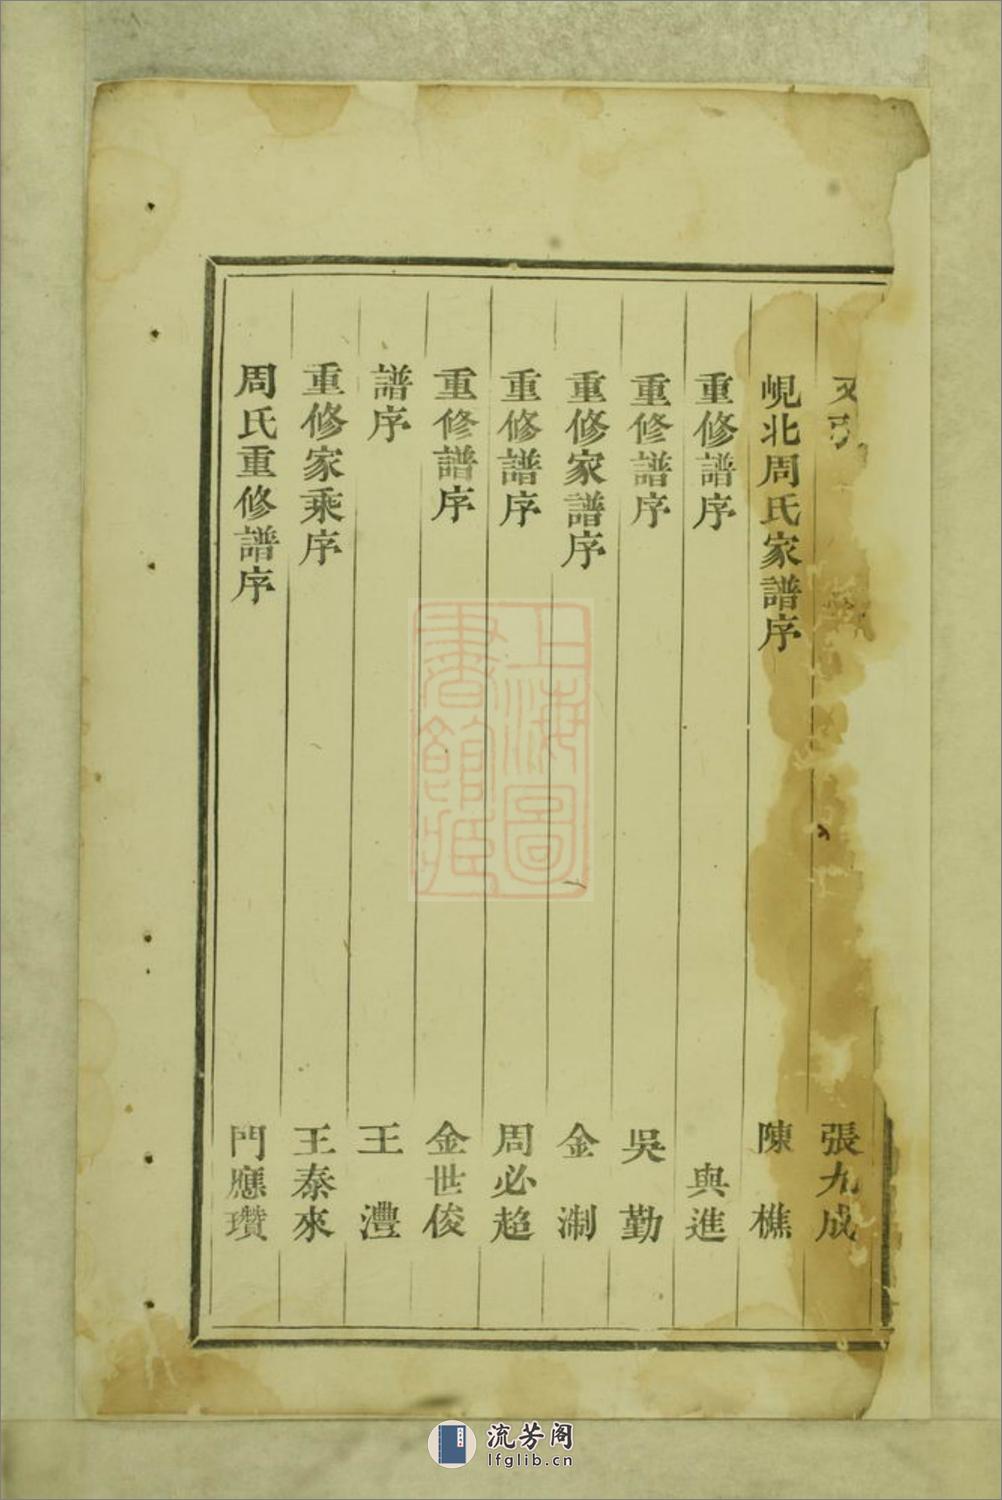 又引 張九成
峴北周氏家譜序 陳樵
重修譜序 與進
重修譜序 吳勤
重修家譜序 金淛
重修譜序 周必超
重修譜序 金世俊
譜序 王灃
重修家乘序 王泰來
周氏重修譜序 門應瓚
上海圖書館藏
流芳阁
lfglib.cn